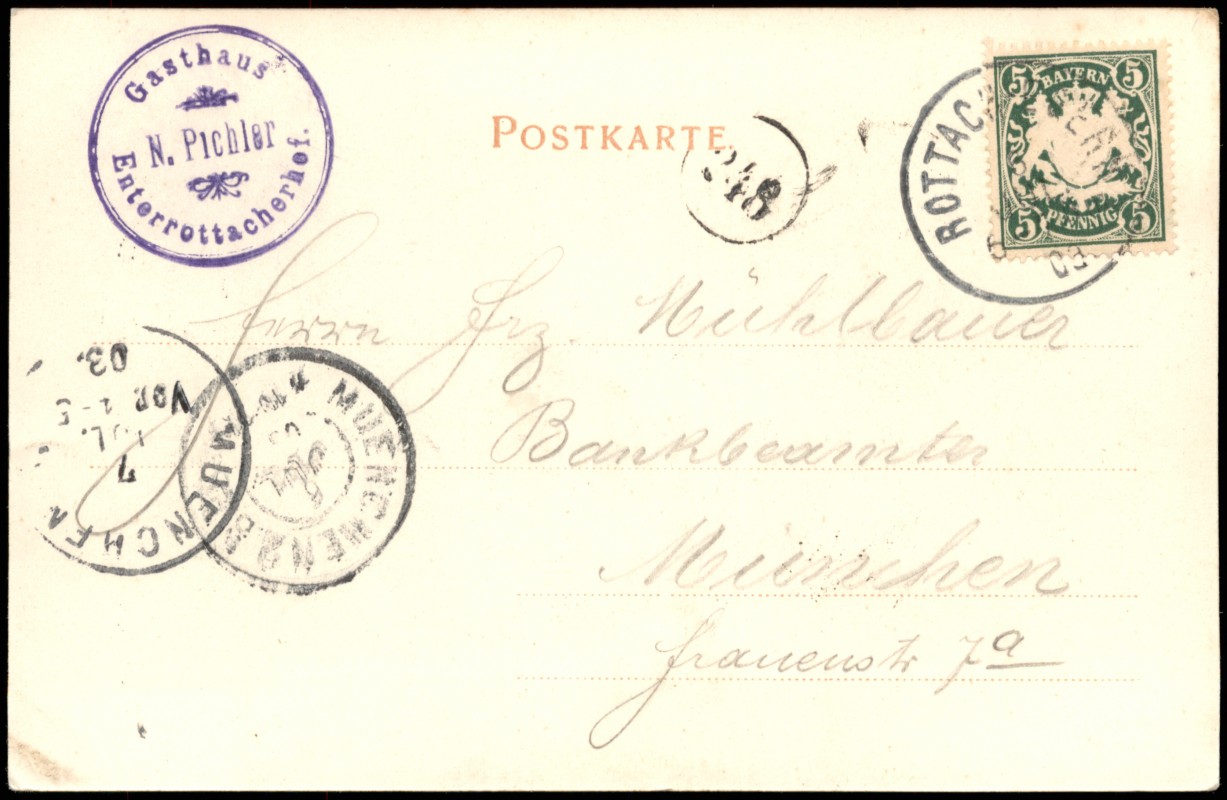 Gasthaus
N. Pichler
Enterrottacherhof.
POSTKARTE.
248
ROTTACH
5 BAYERN 5
5 PFENNIG 5
03
Herrn Frz. Mühlbauer
Bankbeamter
München
Frauenstr 7a
MUENCHEN
7
JUL.
VOR
03.
MUENCHEN 28